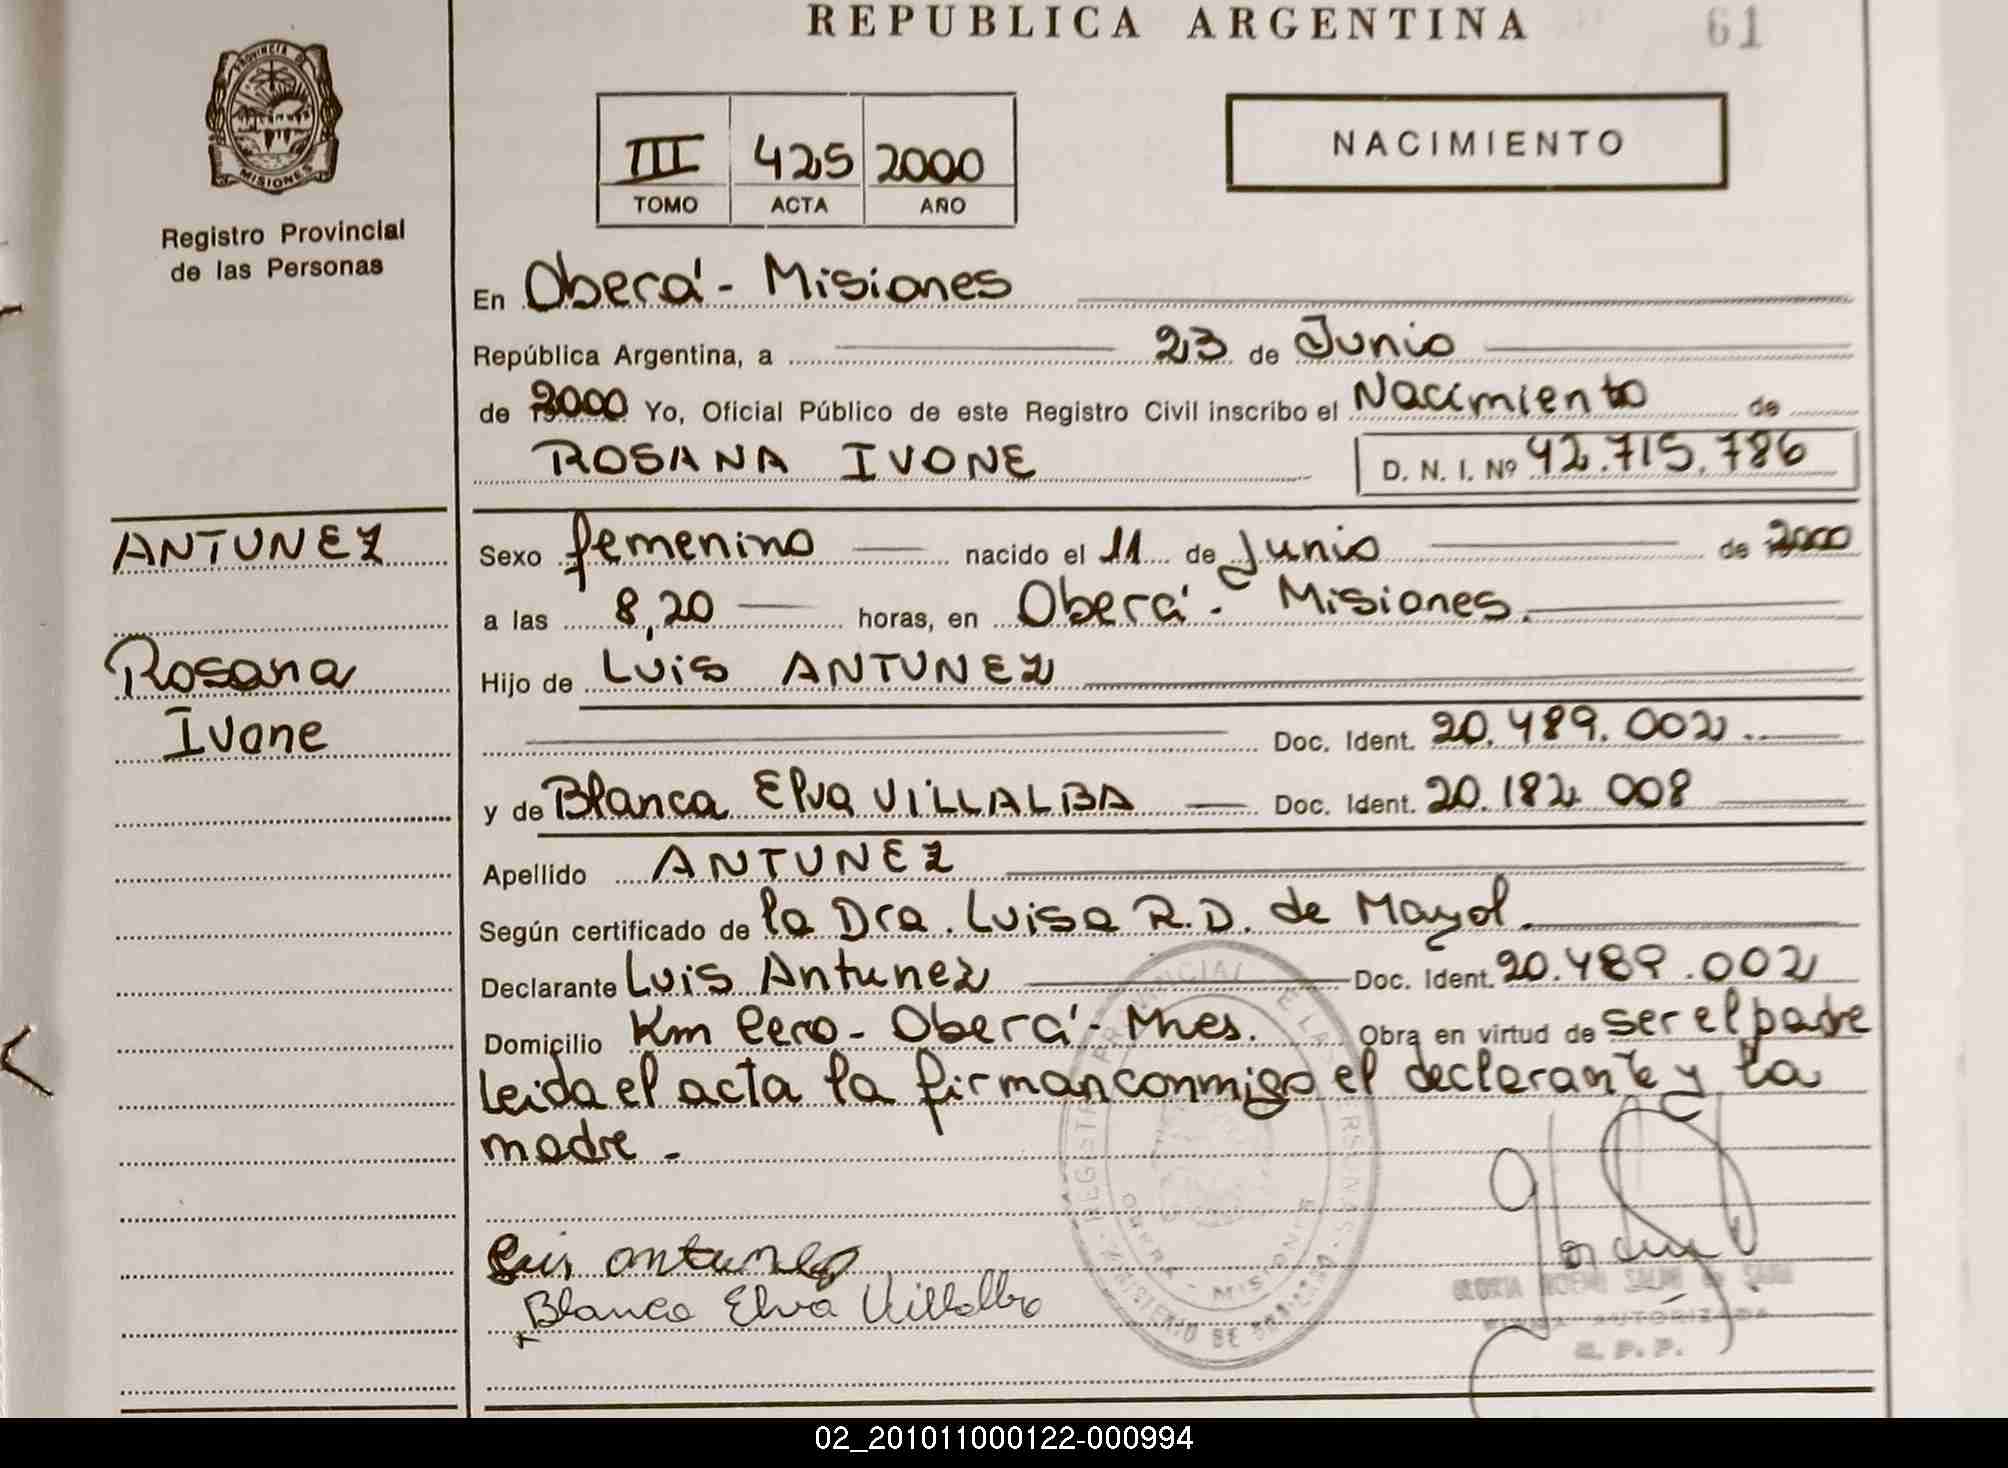 REPUBLICA ARGENTINA
61
PROVINCIA DE
MISIONES
Registro Provincial
de las Personas
III 425 2000
TOMO ACTA AÑO
NACIMIENTO
En Oberá - Misiones
República Argentina, a 23 de Junio
de 2000 Yo, Oficial Público de este Registro Civil inscribo el Nacimiento de
ROSANA IVONE D. N. I. Nº 42.715.786
ANTUNEZ
Rosana
Ivone
Sexo femenino nacido el 11 de Junio de 2000
a las 8,20 horas, en Oberá - Misiones.
Hijo de Luis ANTUNEZ
Doc. Ident. 20.489.002
y de Blanca Elva VILLALBA Doc. Ident. 20.182.008
Apellido ANTUNEZ
Según certificado de la Dra. Luisa R.D. de Mayol.
Declarante Luis Antunez Doc. Ident. 20.489.002
Domicilio Km Cero - Oberá - Mnes. Obra en virtud de ser el padre
leida el acta la firman conmigo el declarante y la
madre -
Luis antunez
Blanca Elva Villalba
GLORIA NOEMI
FIRMA AUTORIZADA
R. P. P.
02_201011000122-000994